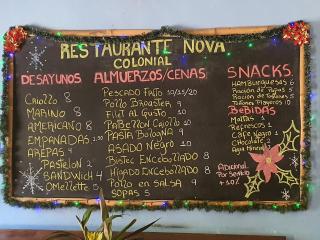 RESTAURANTE NOVA
COLONIAL
DESAYUNOS
CRIOLLO 8
MARINO 8
AMERICANO 8
EMPANADAS
AREPAS 4
PASTELON 2
SANDWICH 4
OMELETTE 5
ALMUERZOS/CENAS
PESCADO FRITO 10/15/20
POLLO BROASTER 9
FILET AL GUSTO 10
PABELLON CRIOLLO 10
PASTA BOLOGNA 9
ASADO NEGRO 10
BISTEC ENCEBOLLADO 8
HIGADO ENCEBOLLADO 8
POLLO EN SALSA 9
SOPAS 5
SNACKS
HAMBURGUESAS 6
RACION DE PAPAS 5
RACION DE TOSTONES 5
TOSTONES PLAYEROS 10
BEBIDAS
MALTAS
REFRESCOS
CAFE NEGRO 1
CHOCOLATE
AGUA MINERAL
ADICIONAL
POR SERVICIO
+10%